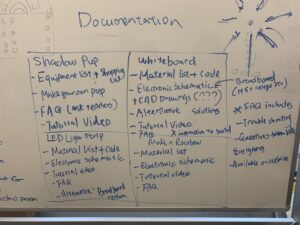 Documentation
Shadow Pup
- Equipment list + Shopping list
- Multiguroom pup
- FAQ (last
- Tutorial Video
LED Light Strip
- Material List + Code
- Electronic Schematic
- Tutorial video
- FAQ
- Breadboard version
Whiteboard
- Material list + code
- Electronic Schematic
+ CAD Drawings (???)
- Alternative Solutions
- Tutorial Video
- FAQ
Make a Rainbow
- Material list
- Electronic Schematic
- Tutorial Video
- FAQ
Breadboard
* FAQ includes
- Trouble shooting
- Questions from
Everything
Available on website